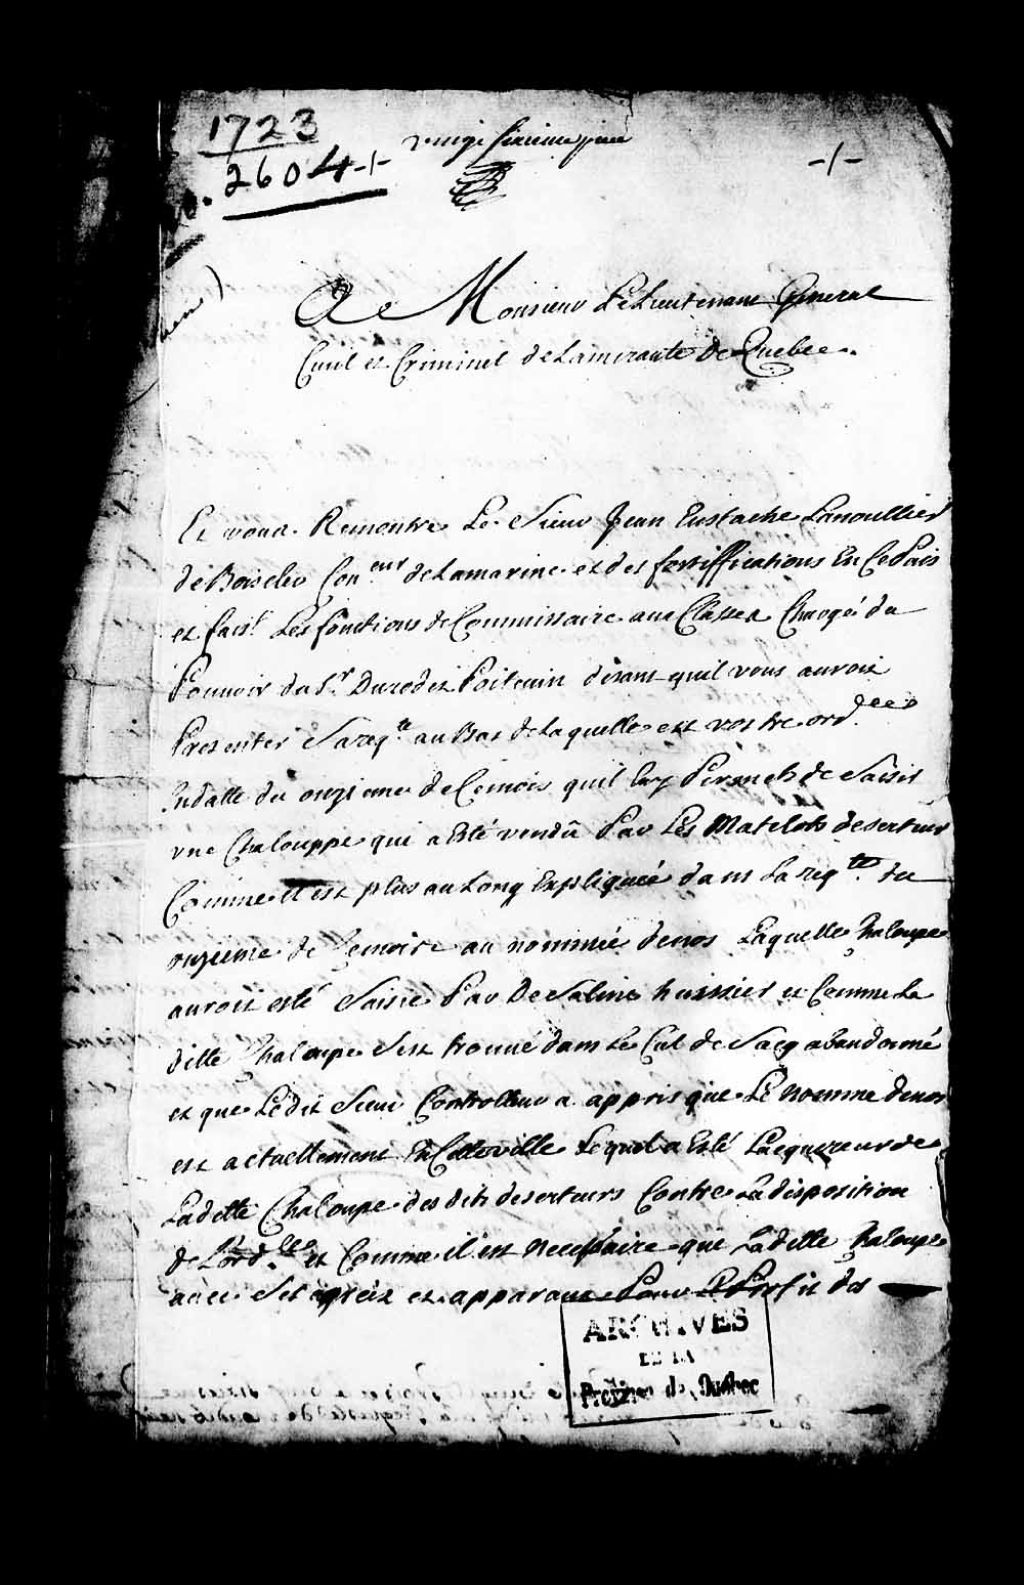 1723
2604 -/-
vingt sixieme piece
-/-
A Monsieur Le Lieutenant General
Civil et Criminel de Lamirauté de Quebec.
Et vous Remontre Le Sieur Jean Eustache Lanoullier
de Boisclerc Con.eur de Lamarine et des fortiffications En Ce Pais
et fais.t Les fonctions de Commissaire aux Classes Chargé du
Pouvoir du S.r Duredez Poitevin disant quil vous auroit
Presenter Sa req.te au Bas de Laquelle est vostre ord.ce
En datte du onzieme de Ce mois quil luy Permet de Saisir
une Chalouppe qui a Esté vendu Par Les Matelots deserteur
Comme il est plus au Long Expliqueé dans La req.te du
onzieme de Ce mois au nommé denos Laquelle Chaloupe
auroit esté Saisie Par De Saline huissier et Comme La
ditte Chaloupe Sest trouvé dans Le Cul de Sacq abandonné
et que Le dit Sieur Controlleur a appris que Le nomme denos
est actuellement En Cette ville Lequel a Esté Lacquereur de
Ladette Chaloupe des dits deserteurs Contre La disposition
de L'ord.ce et Comme il est necessaire que Laditte Chaloupe
avec Ses agreiz et apparaux Pour Le Profit des
ARCHIVES
DE LA
Province de Québec